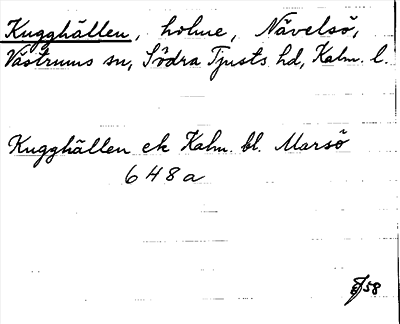 Kugghällen, holme, Nävelsö,
Västrums sn, Södra Tjusts hd, Kalm. l.
Kugghällen ek Kalm. bl. Marsö
648a
58